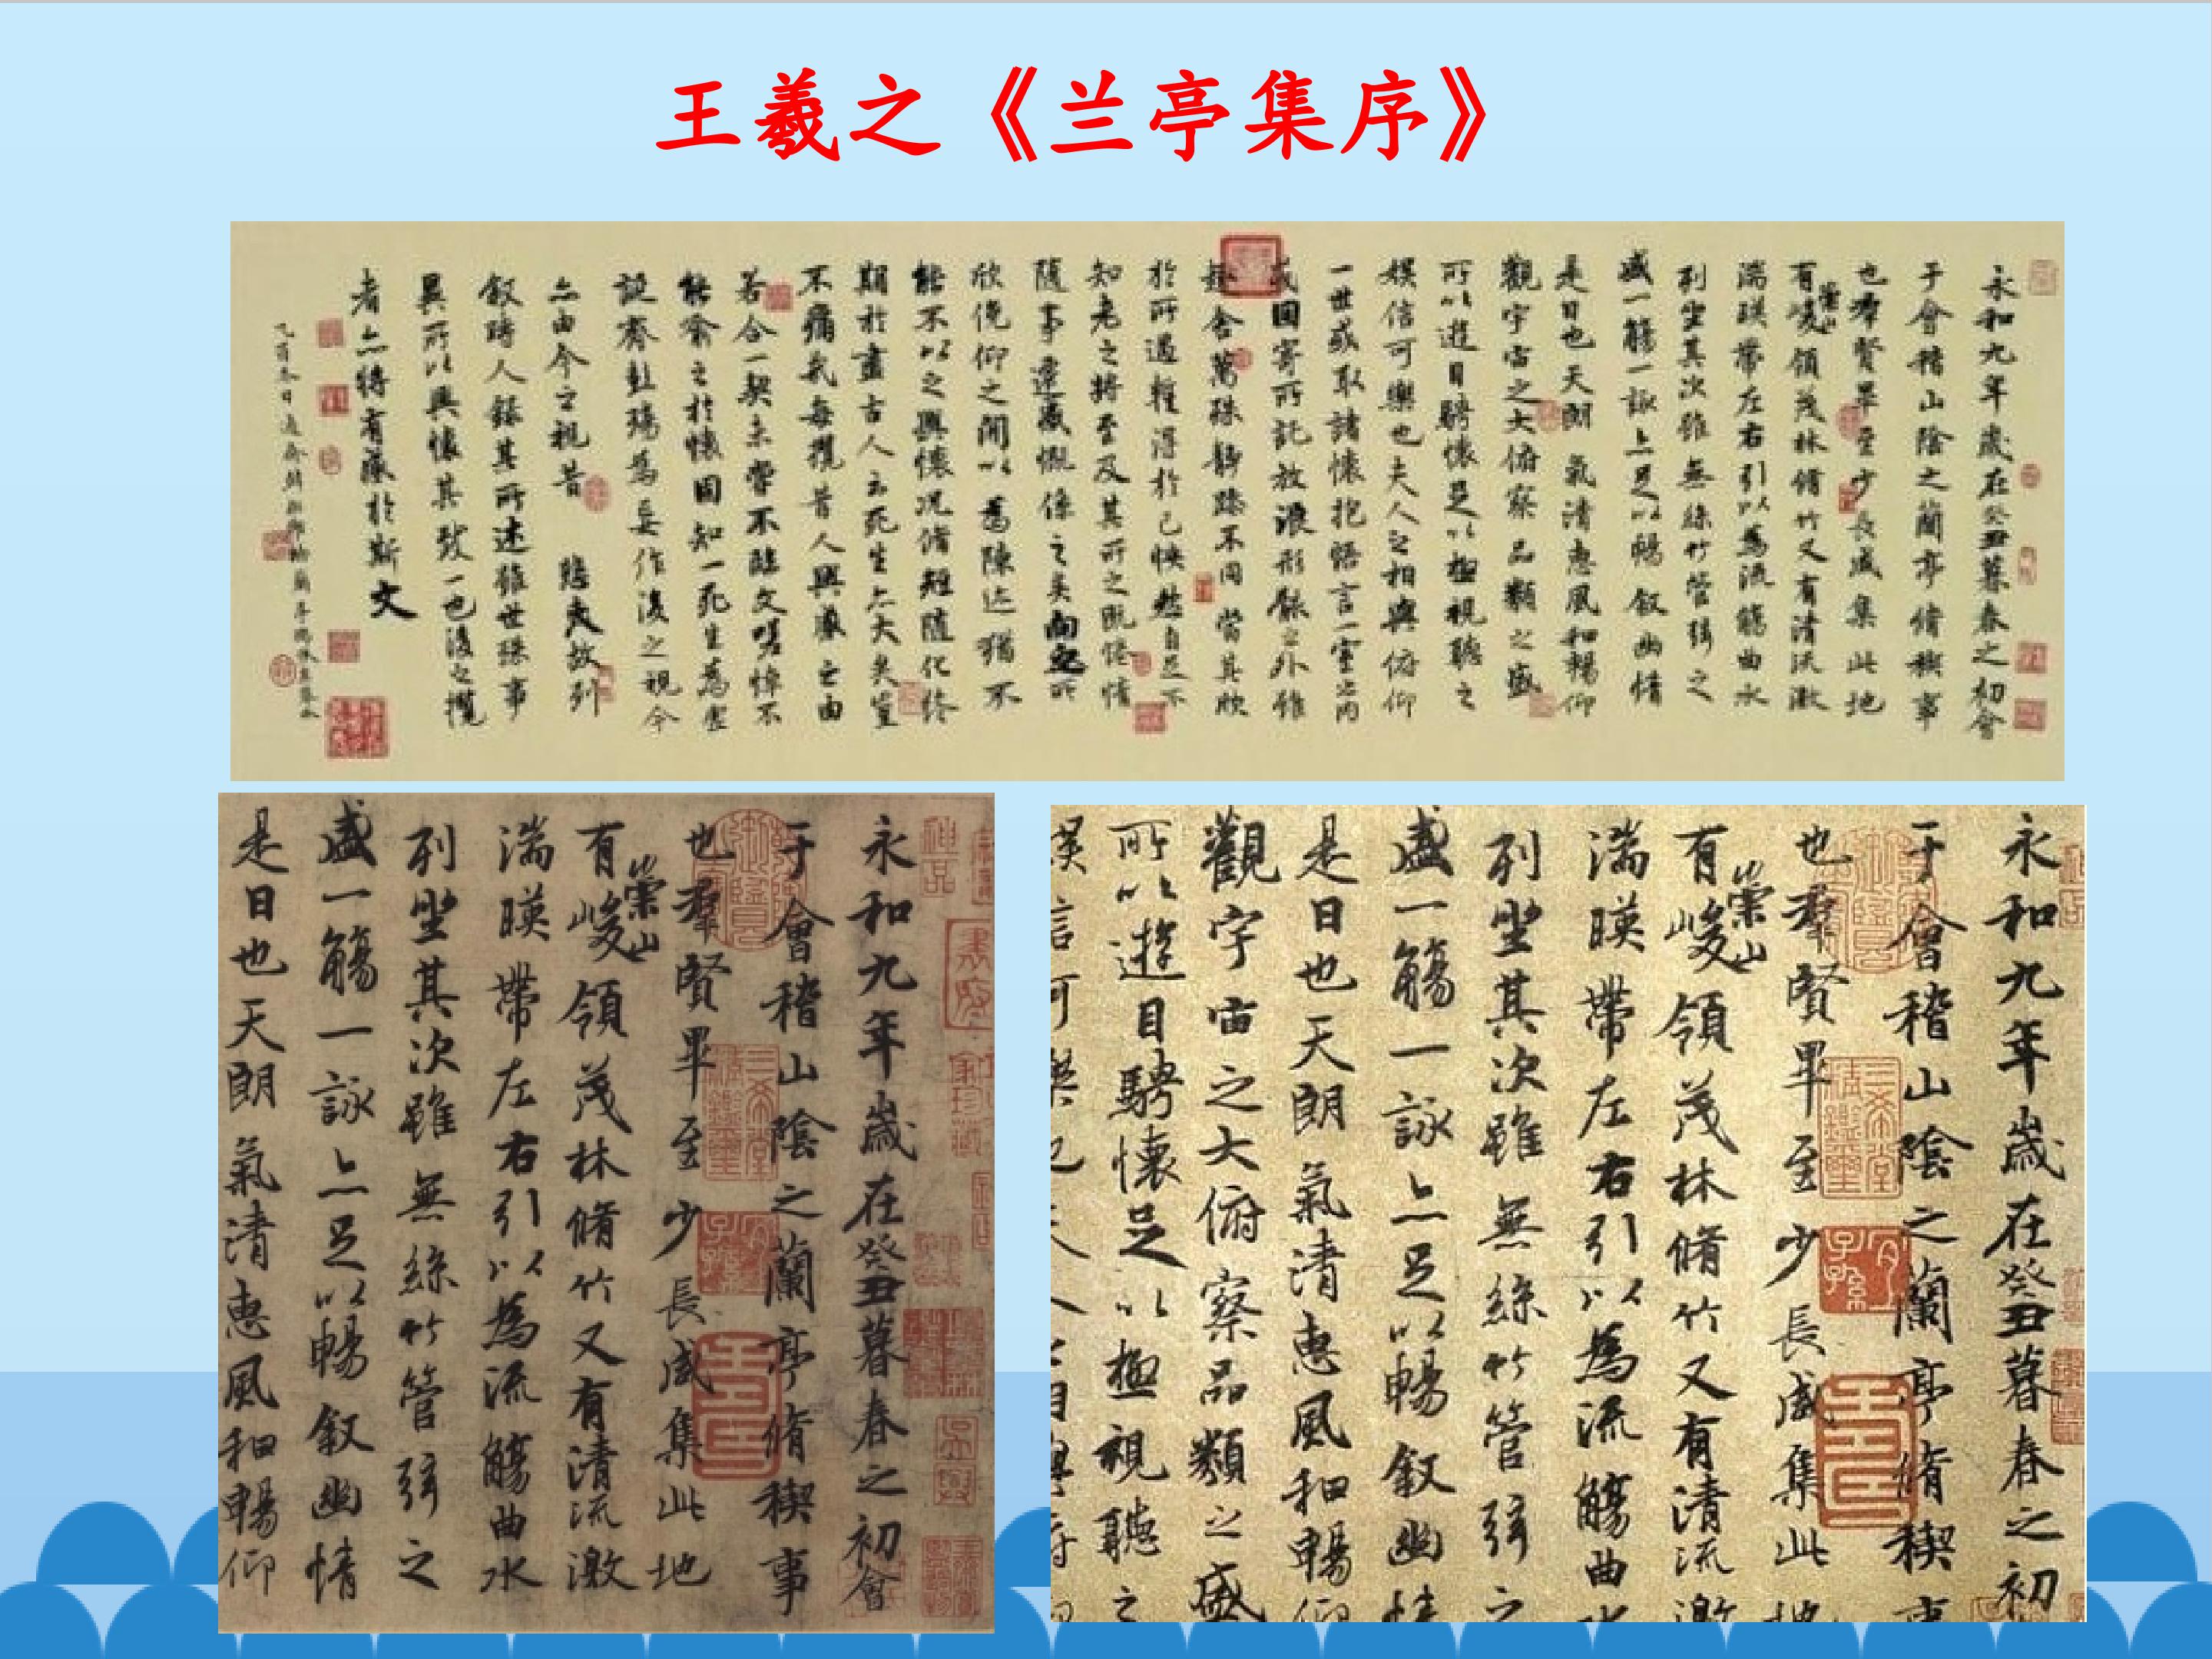 王羲之《兰亭集序》
永和九年歲在癸丑暮春之初會
于會稽山陰之蘭亭脩稧事
也羣賢畢至少長咸集此地
有崇山峻領茂林脩竹又有清流激
湍暎帶左右引以為流觴曲水
列坐其次雖無絲竹管弦之
盛一觴一詠亦足以暢敘幽情
是日也天朗氣清惠風和暢仰
觀宇宙之大俯察品類之盛
所以遊目騁懷足以極視聽之
娛信可樂也夫人之相與俯仰
一世或取諸懷抱悟言一室之內
或因寄所託放浪形骸之外雖
趣舍萬殊靜躁不同當其欣
於所遇輒得於己怏然自足不
知老之將至及其所之既惓情
隨事遷感慨係之矣向之所
欣俛仰之閒以為陳迹猶不
能不以之興懷況脩短隨化終
期於盡古人云死生亦大矣豈
不痛哉每攬昔人興感之由
若合一契未嘗不臨文嗟悼不
能喻之於懷固知一死生為虛
誕齊彭殤為妄作後之視今
亦由今之視昔悲夫故列
敘時人錄其所述雖世殊事
異所以興懷其致一也後之攬
者亦將有感於斯文
永和九年歲在癸丑暮春之初會
于會稽山陰之蘭亭脩稧事
也羣賢畢至少長咸集此地
有崇山峻領茂林脩竹又有清流激
湍暎帶左右引以為流觴曲水
列坐其次雖無絲竹管弦之
盛一觴一詠亦足以暢敘幽情
是日也天朗氣清惠風和暢仰
永和九年歲在癸丑暮春之初
于會稽山陰之蘭亭脩稧事
也羣賢畢至少長咸集此地
有崇山峻領茂林脩竹又有清流激
湍暎帶左右引以為流觴曲水
列坐其次雖無絲竹管弦之
盛一觴一詠亦足以暢敘幽情
是日也天朗氣清惠風和暢仰
觀宇宙之大俯察品類之盛
所以遊目騁懷足以極視聽之